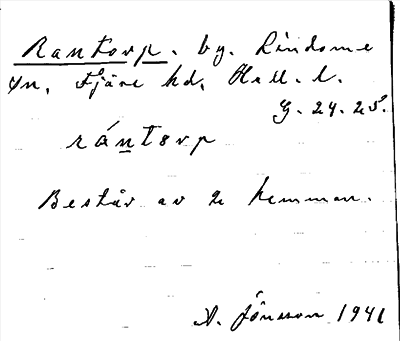 Rantorp. by. Lindome
sn, Fjäre hd, Hall. l.
G. 24. 25.
rántorp
Består av 2 hemman.
A. Jönsson 1941